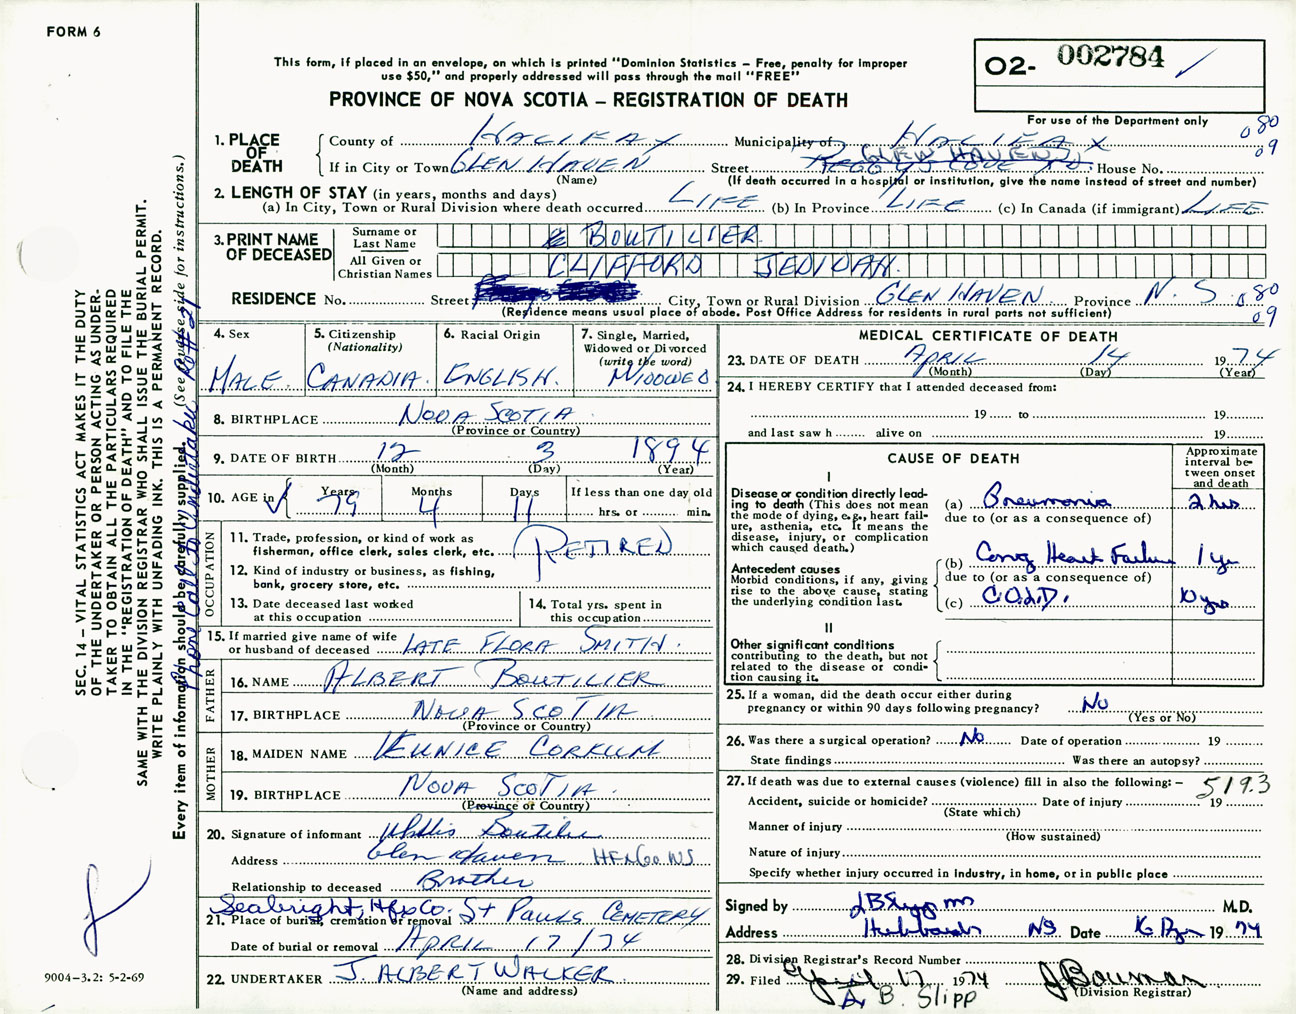 FORM 6
O2- 002784
This form, if placed in an envelope, on which is printed "Dominion Statistics – Free, penalty for improper
use $50," and properly addressed will pass through the mail "FREE"
PROVINCE OF NOVA SCOTIA – REGISTRATION OF DEATH
For use of the Department only
080
09
1. PLACE OF DEATH
County of HALIFAX Municipality of HALIFAX
If in City or Town GLEN HAVEN Street GLEN HAVEN House No.
(Name) (If death occurred in a hospital or institution, give the name instead of street and number)
2. LENGTH OF STAY (in years, months and days)
(a) In City, Town or Rural Division where death occurred LIFE (b) In Province LIFE (c) In Canada (if immigrant) LIFE
3. PRINT NAME OF DECEASED
Surname or Last Name BOUTILIER
All Given or Christian Names CLIFFORD JEDIDAH.
RESIDENCE No. Street City, Town or Rural Division GLEN HAVEN Province N.S. 080
09
(Residence means usual place of abode. Post Office Address for residents in rural parts not sufficient)
4. Sex MALE
5. Citizenship (Nationality) CANADIA.
6. Racial Origin ENGLISH.
7. Single, Married, Widowed or Divorced (write the word) WIDOWED
8. BIRTHPLACE NOVA SCOTIA
(Province or Country)
9. DATE OF BIRTH 12 3 1894
(Month) (Day) (Year)
10. AGE in Years 79 Months 4 Days 11 If less than one day old
hrs. or min.
OCCUPATION
11. Trade, profession, or kind of work as
fisherman, office clerk, sales clerk, etc. RETIRED
12. Kind of industry or business, as fishing,
bank, grocery store, etc.
13. Date deceased last worked
at this occupation
14. Total yrs. spent in
this occupation
15. If married give name of wife
or husband of deceased LATE FLORA SMITH.
FATHER
16. NAME ALBERT BOUTILIER
17. BIRTHPLACE NOVA SCOTIA
(Province or Country)
MOTHER
18. MAIDEN NAME EUNICE CORKUM
19. BIRTHPLACE NOVA SCOTIA.
(Province or Country)
20. Signature of informant Boutilier
Address Glen Haven HFX Co NS
Relationship to deceased Brother
Seabright, Hfx Co. St Pauls CEMETERY
21. Place of burial, cremation or removal
Date of burial or removal APRIL 17/74
22. UNDERTAKER J. ALBERT WALKER
(Name and address)
MEDICAL CERTIFICATE OF DEATH
23. DATE OF DEATH APRIL 14 1974
(Month) (Day) (Year)
24. I HEREBY CERTIFY that I attended deceased from:
19 to 19
and last saw h alive on 19
CAUSE OF DEATH
Approximate interval between onset and death
I
Disease or condition directly lead-
ing to death (This does not mean
the mode of dying, e.g., heart fail-
ure, asthenia, etc. It means the
disease, injury, or complication
which caused death.)
(a) Pneumonia 2 hrs
due to (or as a consequence of)
(b) Cong Heart Failure 1 yr
due to (or as a consequence of)
(c) C.O.L.D. 10 yrs
Antecedent causes
Morbid conditions, if any, giving
rise to the above cause, stating
the underlying condition last.
II
Other significant conditions
contributing to the death, but not
related to the disease or condi-
tion causing it.
25. If a woman, did the death occur either during
pregnancy or within 90 days following pregnancy? No
(Yes or No)
26. Was there a surgical operation? No Date of operation 19
State findings Was there an autopsy?
27. If death was due to external causes (violence) fill in also the following: – 519.3
Accident, suicide or homicide? Date of injury 19
(State which)
Manner of injury
(How sustained)
Nature of injury
Specify whether injury occurred in industry, in home, or in public place
Signed by M.D.
Address Hubbards NS Date 16 19 74
28. Division Registrar's Record Number
29. Filed April 17 1974 J Bowman
(Division Registrar)
B. Slipp
SEC. 14 – VITAL STATISTICS ACT MAKES IT THE DUTY
OF THE UNDERTAKER OR PERSON ACTING AS UNDER-
TAKER TO OBTAIN ALL THE PARTICULARS REQUIRED
IN THE "REGISTRATION OF DEATH" AND TO FILE THE
SAME WITH THE DIVISION REGISTRAR WHO SHALL ISSUE THE BURIAL PERMIT.
WRITE PLAINLY WITH UNFADING INK. THIS IS A PERMANENT RECORD.
Every item of information should be carefully supplied. (See reverse side for instructions.)
Phone call to Undertaker
9004-3.2: 5-2-69